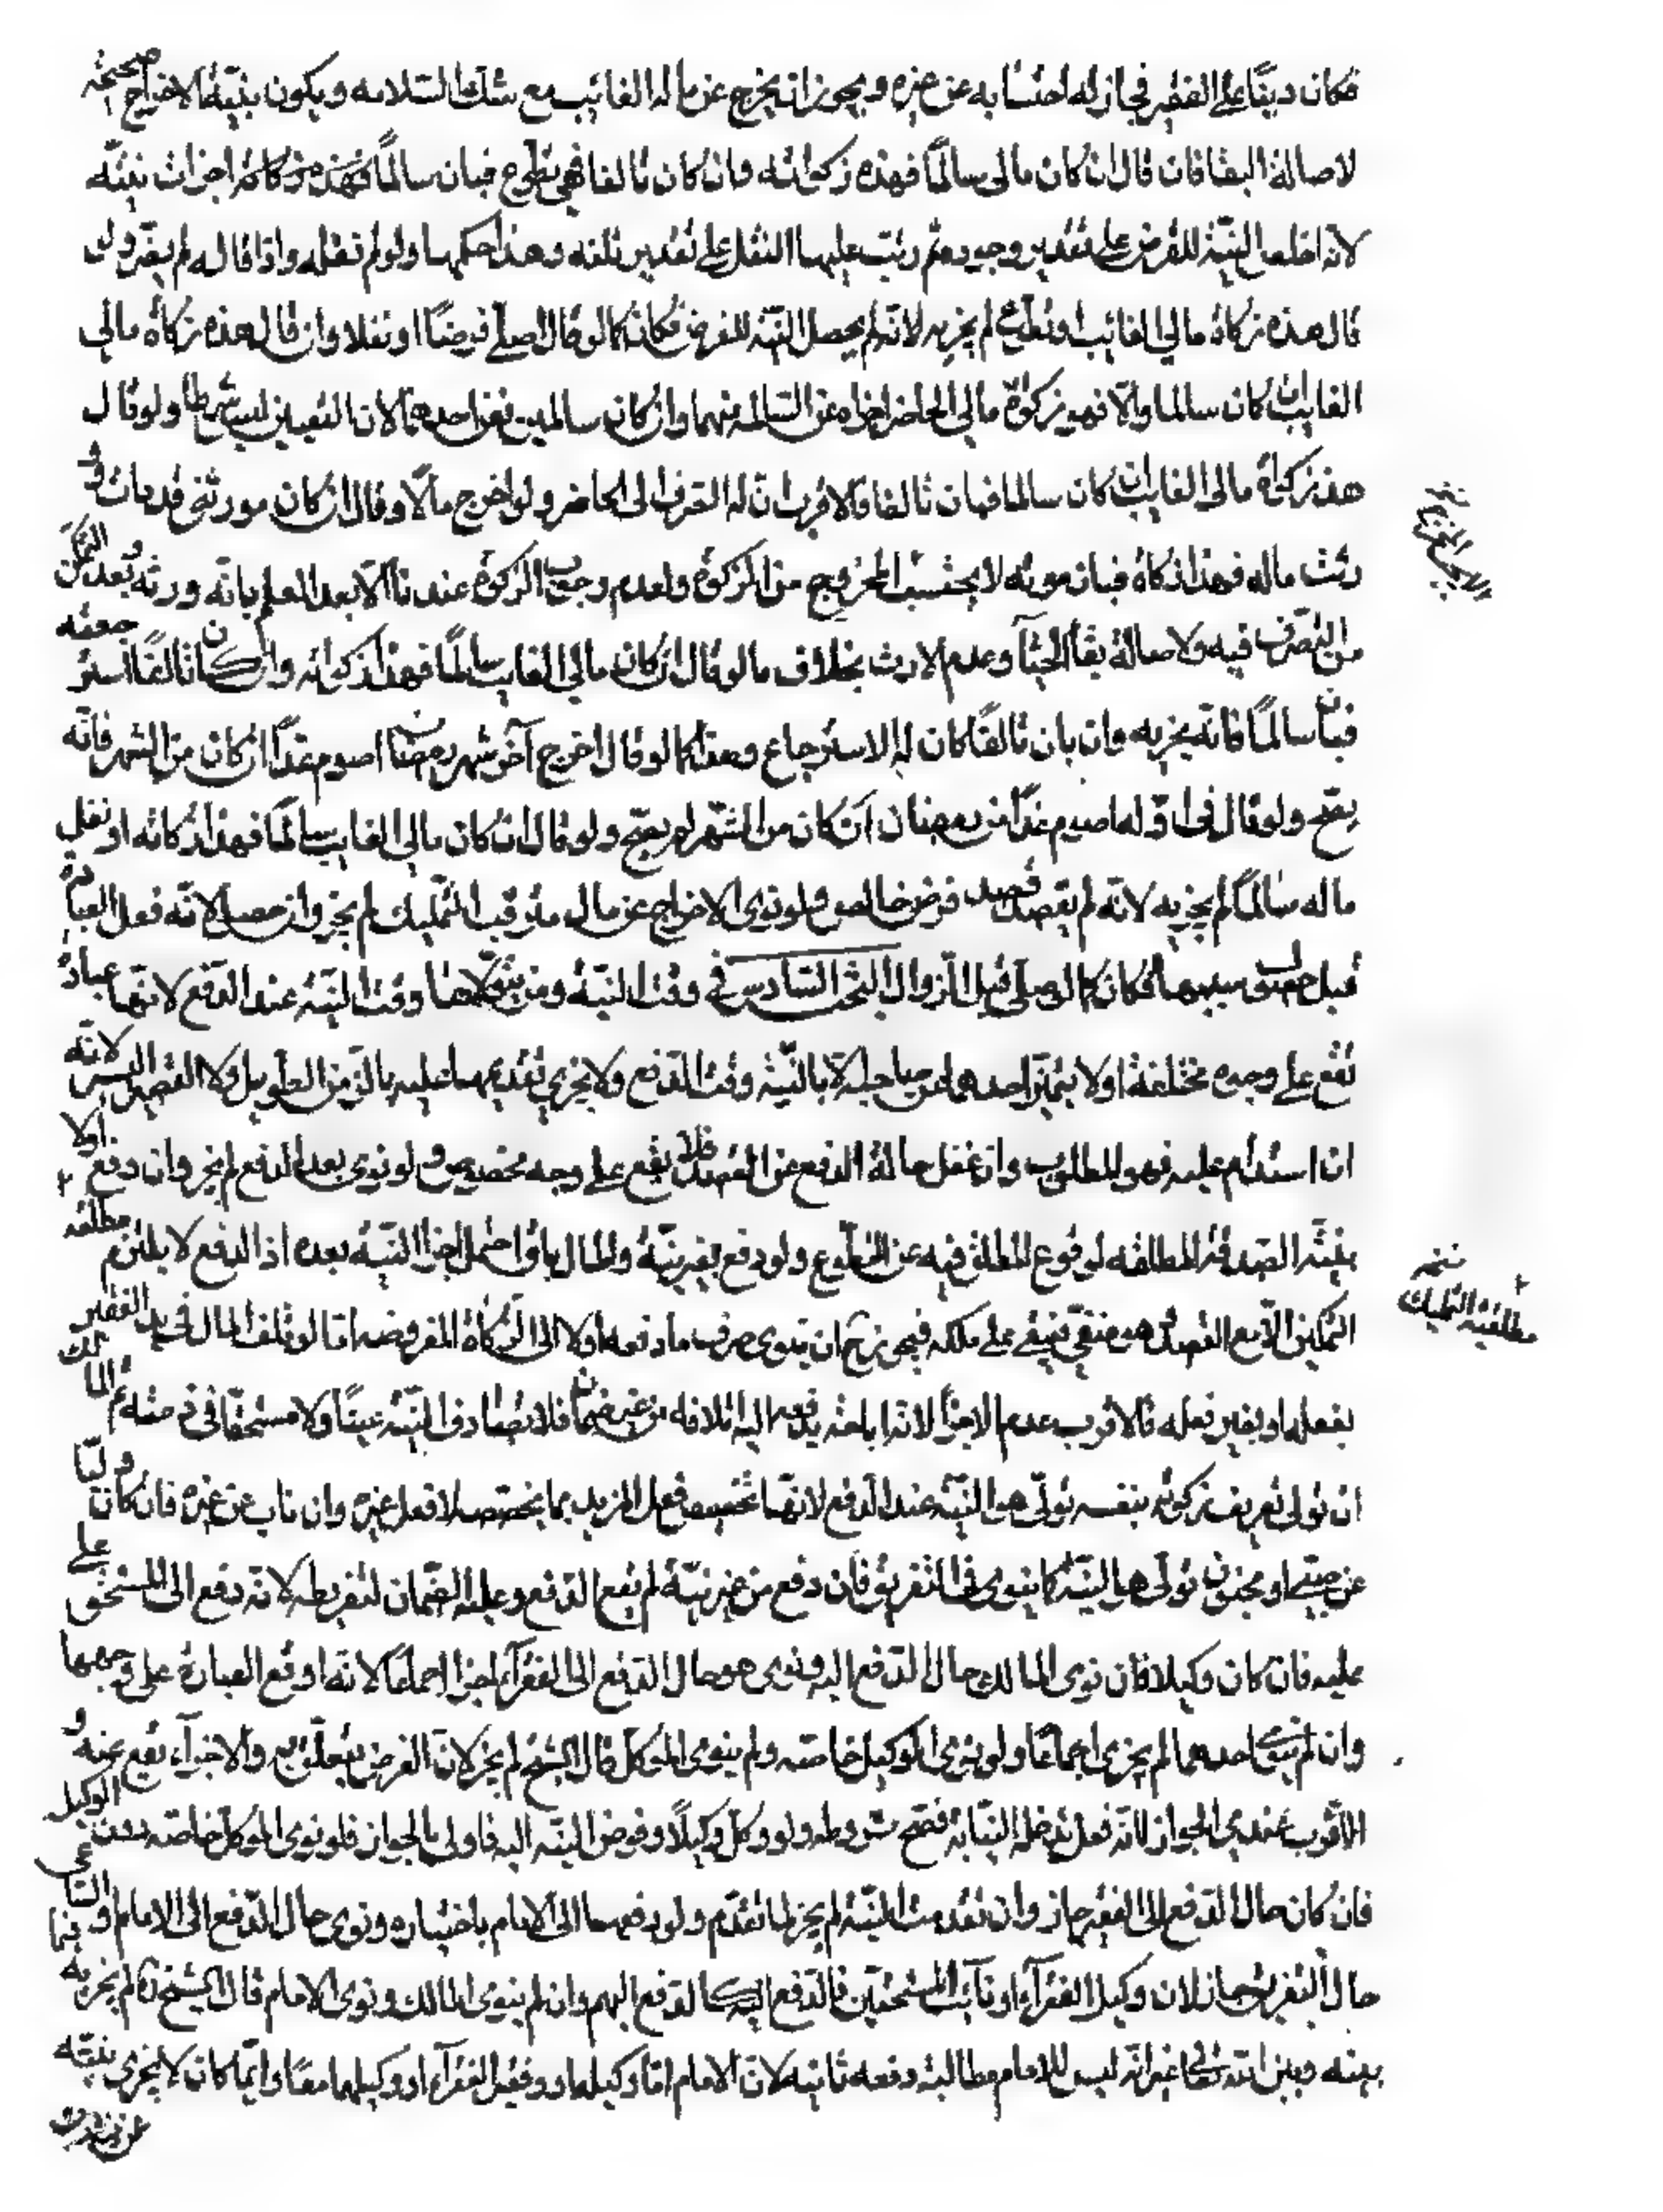 فكان دينًا على الفقير فجاز له احتسابه عن غيره ويجوز ان يخرج عن ماله الغائب مع شك السلامه ويكون بنيّة الاخراج صحيحة
لاصالة البقا فان قال ان كان مالى سالمًا فهذه زكواته وان كان تالفا فهى تطوع فبان سالمًا فهذه زكاته اجزات بنيّه
لانه اخلص النيّة للفرض على تقدير وجوده ثم رتب عليها النفل على تقدير تلفه وهذا حكمها ولو لم نقله واذا قاله لم يضر ولو
قال هذه زكاة مالي الغائب او تطوع لم يجزيه لانه لم يحصل النيّة للفرض فكان كما لو قال اصلّے فرضًا او نفلا وان قال هذه زكاة مالي
الغايب ان كان سالما والا فهو زكوة مالي الحاضر اجزاه عن السالم منهما وان كان سالمين فعن احدهما لان التعيين ليس شرطا ولو قال
هذه زكوة مالى الغايب ان كان سالما فبان تالفا فالاقرب ان له الصرف الى الحاضر ولو اخرج مالًا وقال ان كان مورثى قد مات و
رثت ماله فهذا زكاة فبان موته لا يحتسب المخروج من الزكوة ولعدم وجوب الزكوة عندنا الا بعد العلم بانه ورثه وبعد التمكن
من التصرف فيه ولاصالة بقا الحياة وعدم الارث بخلاف ما لو قال ان كان مالي الغايب سالمًا فهذا زكواته وان كان تالفًا استرجعته
فبان سالمًا فانه يجزيه وان بان تالفًا كان له الاسترجاع وهذا كما لو قال اخرج آخر شهر رمضان اصوم غدًا ان كان من الشهر فانه
يصّح ولو قال فى اوّله اصوم غدًا من رمضان ان كان من الشهر لم يصّح ولو قال ان كان مالي الغايب سالمًا فهذا زكاته او نفل
ماله سالمًا لم يجزيه لانه لم يقصد قصد فرض خالص ولو نوى الاخراج عن مال مترقب التمليك لم يجز وان حصل لانه فعل العبادة
قبل حصول سببها فكان كما لو صلى قبل الزوال البحث السادس فى وقت النيّة ومن يتولاها وقت النيّة عند الدفع لانها عبادة
تقع على وجوه مختلفة اولا يتميّز احدهما عن صاحبه الا بالنيّة وقت الدفع ولا يجزي تقديمها عليه بالزمن الطويل ولا القصير اليسير لانه
ان استدام عليه فهو المطلوب وان غفل حالة الدفع عن القصد فلا يقع على وجه مخصوص ولو نوى بعد الدفع لم يجز وان دفع اولا
بنيّة الصدقة المطلقه لوقوع المطلق فيه عن التطوع ولو دفع بغير نيّة والمال باق احتمل اجزا النيّة بعده اذ الدفع لا يلتزم مطلقه
التمكين الا مع القصد وهو منتفي فيبقى على ملكه فيجوز ح ان ينوى صرف ما دفعه اولا الى الزكاة المفروضه امّا لو تلف المال في يد الفقير
بفعله او بغير فعله فالاقرب عدم الاجزا لانه اباحته بدفعه اليه اتلافه من غير ضمان فلا تصادف النيّة عينًا ولا مستحقا في ذمته ثم المالك
ان تولى تعريف زكوته بنفسه تولّى هو النيّة عند الدفع لانها تخصيص فعل المزيد بما يختص لا فعل غيره وان ناب عن غيره فان كان وليّا
عن صبّى او مجنون تولى هو النيّة كما ينوي فى التفريق فان دفع من غير نيّة لم يقع الدفع وعليه الضمان لتفريطه لانه دفع الى المستحق على
عليه فان كان وكيلا فان نوى المالك حال الدفع اليه ونوى هو حال الدفع الى الفقرآء اجزا اجماعًا لانه اوقع العبادة على وجهها
وان لم ينو احدهما لم يجزى اجماعًا ولو نوى الوكيل خاصه ولم ينوى الموكل قال الشيخ لم يجز لان الفرض يتعلق به والاجزآء يقع عنه و
الاقرب عندي الجواز لانه فعل تدخله النيابة فتصح شروطه ولو وكل وكيلًا وفوض النيّه اليه فاولى بالجواز فلو نوى الموكل خاصه دون الوكيل
فان كان حال الدفع الى الفقير جاز وان تقدمت النيّة لم يجز لما تقدّم ولو دفعها الى الامام باختياره ونوى حال الدفع الى الامام او الساعى
حال التفريق جاز لان وكيل الفقرآء او نائب المستحقين فالدفع اليه كالدفع اليهم وان لم ينوى المالك ونوى الامام قال الشيخ ره لم يجزيه فيما
بينه وبين الله تعالى غير انه ليس للامام مطالبته دفعه ثانيه لان الامام امّا وكيله او وكيل الفقرآء او وكيلهما معًا وايّما كان لا يجزى بنيّته
عن نيّة رب
مطلقية التمليك